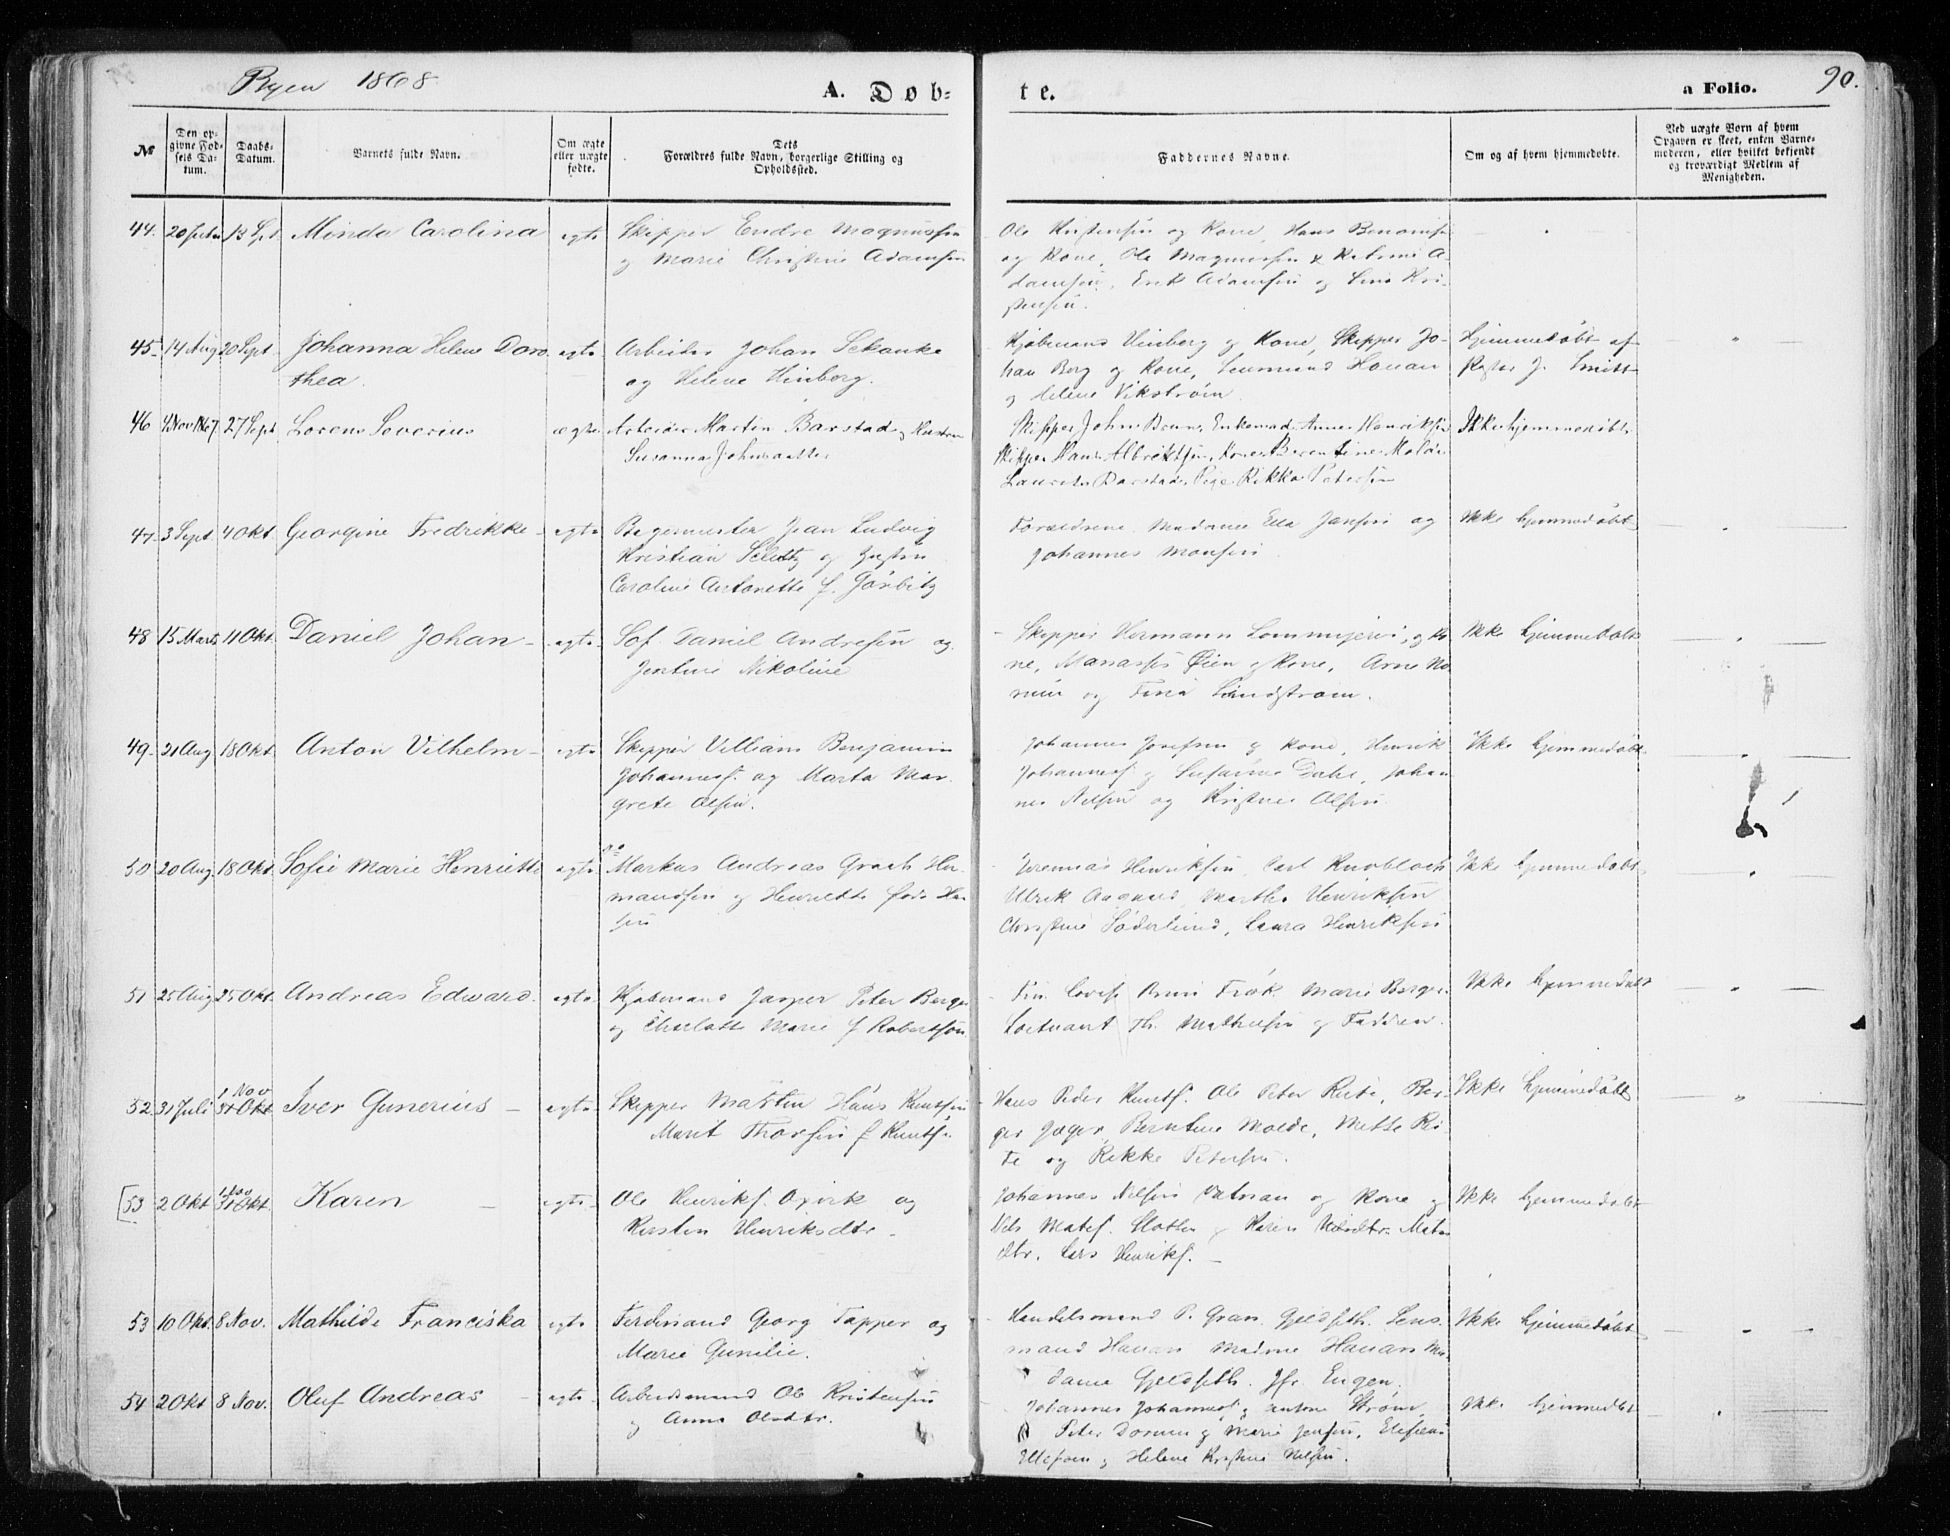 Byen 1868.
A. Døb-
te.
a Folio.
90.
№
Den op-
givne Fød-
sels Da-
tum.
Daabs-
Datum.
Barnets fulde Navn.
Om ægte
eller uægte
fødte.
Dets
Forældres fulde Navn, borgerlige Stilling og
Opholdssted.
Faddernes Navne.
Om og af hvem hjemmedøbte.
Ved uægte Børn af hvem
Opgaven er skeet, enten Barne-
moderen, eller hvilket bekjendt
og troværdigt Medlem af
Menigheden.
44. 13 Spt Minda Carolina egte Skipper Endre Magnussen
og Marie Christine Adamsen
Ole Kristensen og Kone, Hans
og Kone, Ole Magnussen A-
damsen, Erik Adamsen og Lina Kri-
stensen.
45 14 Aug 20 Sept. Johanna Helene Doro- egte Arbeider Johan Schanke
thea. og Helene Hinberg.
Kjøbmand Hinberg og Kone, Skipper Jo-
han Berg og Kone, Lensmand Hanan
og Helene Vikstrøm
hjemmedøbt af
J. Smitt
46 4 Nov 1867 27 Sept. Lorens Severius ægte Arbeider Martin Barstad og Hustru
Susanna Johnsdatter
Skipper John Bruns, Enkemad. Anne Henriksen
Skipper Hans Albriktsen, Kone Berentine
Laurits Barstad, Pige Rikka Petersen
Ikke hjemmedøbt
47 3 Sept 4 Okt Georgine Fredrikke egte Bagermester Jean Ludvig
Kristian og Hustru
Caroline Antonette f. Görbitz
Forældrene. Madame Ella Jansen og
Johannes Monsen
Ikke hjemmedøbt
48 15 Marts 11 Okt. Daniel Johan egte Daniel Andresen og
Jentine Nikoline
Skipper Hermann og Ko-
ne, Manasses Øien og Kone, Arne
og Lindstrøm.
Ikke hjemmedøbt
49. 21 Aug 18 Okt. Anton Vilhelm egte Skipper Villiam Benjamin
Johannesf. og Marta Mar-
grete Olsen.
Johannes Josefsen og Kone, Henrik
Johannesf. og Susanne Dahl, Johan
nes Nilsen og Kristine Olsen.
Ikke hjemmedøbt
50 20 Aug. 18 Okt. Sofie Marie Henriette egte Markus Andreas Her-
mansen og Henriette føds Han
sen
Jeremias Henriksen, Carl Knobloch
Ulrik Aagaard, Martha Henriksen
Christine Söderlund, Laura Henriksen
Ikke hjemmedøbt
51 25 Aug 25 Okt. Andreas Edward. egte Kjøbmand Jasper Peter Berger
og Charlotte Marie f Robertson
Frøk. Marie Berger
Th. Mathisen og Fadren.
Ikke hjemmedøbt
52. 31 Juli 1 Nov
31 Okt Iver Gunerius egte Skipper Martin Hans Knutsen
Marit Thorsen f Knuts.
Hans Peder Knuts. Ole Peter Reite, Ber-
ger Jæger, Berntine Molde, Mette Rei-
te og Rikke Petersen.
Ikke hjemmedøbt
[53 2 Okt 1 Nov
31 Okt. Karen egte Ole Henriks. og
Kirsten Henriksdtr.
Johannes Nilsen og Kone og
Nils Matsf. og Karen Mats
dtr. Lars Henriks.
Ikke hjemmedøbt
53 10 Okt. 8 Nov. Mathilde Franciska egte Ferdinand Georg Tapper og
Marie Gunilie.
Handelsmand P. Gran Gjeldseth. Lens
mand Hanan Madme Hanan Ma-
dame Gjeldseth. Jfr. Engen.
Ikke hjemmedøbt
54 2 Okt 8 Nov. Oluf Andreas egte Arbeidsmand Ole Kristensen
og Anne Olsdtr.
Johannes Johannesf. og Antone Strøm,
Peter og Marie Jensen,
og Helene Kristine Nilsen.
Ikke hjemmedøbt